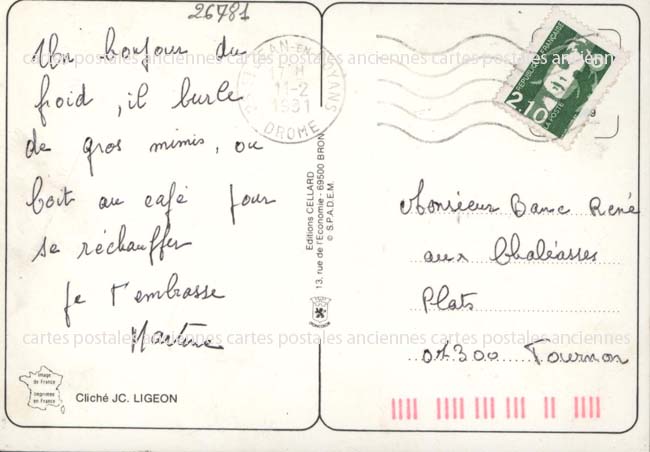 26781
Un bonjour du
froid, il burle
de gros mimis, ou
boit au café pour
se réchauffer
je t'embrasse
Martine
Image
de France
Imprimée
en France
Cliché JC. LIGEON
Editions CELLARD
13, rue de l'Economie - 69500 BRON
© S.P.A.D.E.M.
JEAN-EN-ROYANS
17 H
11-2
1991
DROME
REPUBLIQUE FRANÇAISE
2,10
LA POSTE
Monsieur Banc René
aux Chaléasses
Plats
07300 Tournon
cartes postales anciennes cartes postales anciennes cartes postales anciennes
cartes postales anciennes cartes postales anciennes cartes postales anciennes